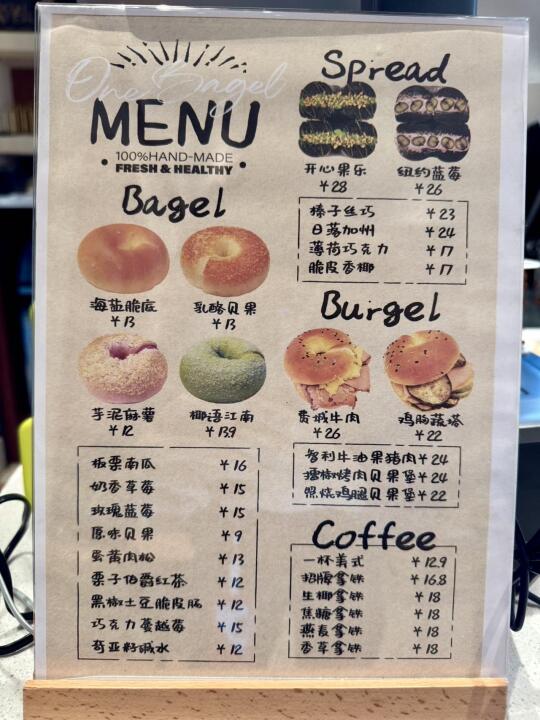 One Bagel
MENU
100%HAND-MADE
FRESH & HEALTHY
Bagel
海盐脆底
¥13
乳酪贝果
¥13
芋泥麻薯
¥12
椰语江南
¥13.9
板栗南瓜 ¥16
奶香草莓 ¥15
玫瑰蓝莓 ¥15
原味贝果 ¥9
蛋黄肉松 ¥13
栗子伯爵红茶 ¥12
黑椒土豆脆皮肠 ¥12
巧克力蔓越莓 ¥15
奇亚籽碱水 ¥12
Spread
开心果乐
¥28
纽约蓝莓
¥26
榛子丝巧 ¥23
日落加州 ¥24
薄荷巧克力 ¥17
脆皮香椰 ¥17
Burgel
费城牛肉
¥26
鸡胸蔬塔
¥22
智利牛油果猪肉 ¥24
擂椒烤肉贝果堡 ¥24
照烧鸡腿贝果堡 ¥22
Coffee
一杯美式 ¥12.9
招牌拿铁 ¥16.8
生椰拿铁 ¥18
焦糖拿铁 ¥18
燕麦拿铁 ¥18
香草拿铁 ¥18